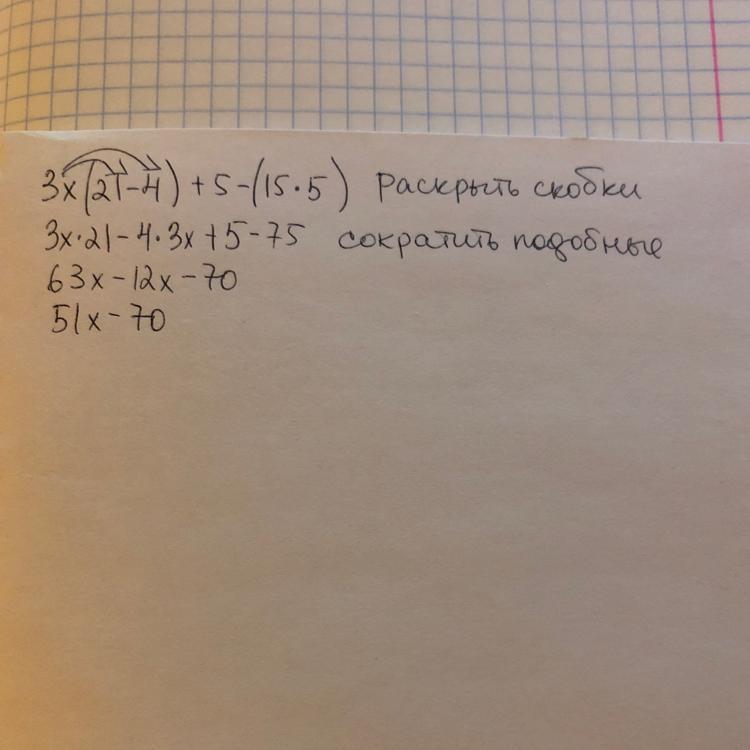 3x(21-4)+5-(15·5) Раскрыть скобки
3x·21-4·3x+5-75 сократить подобные
63x-12x-70
51x-70